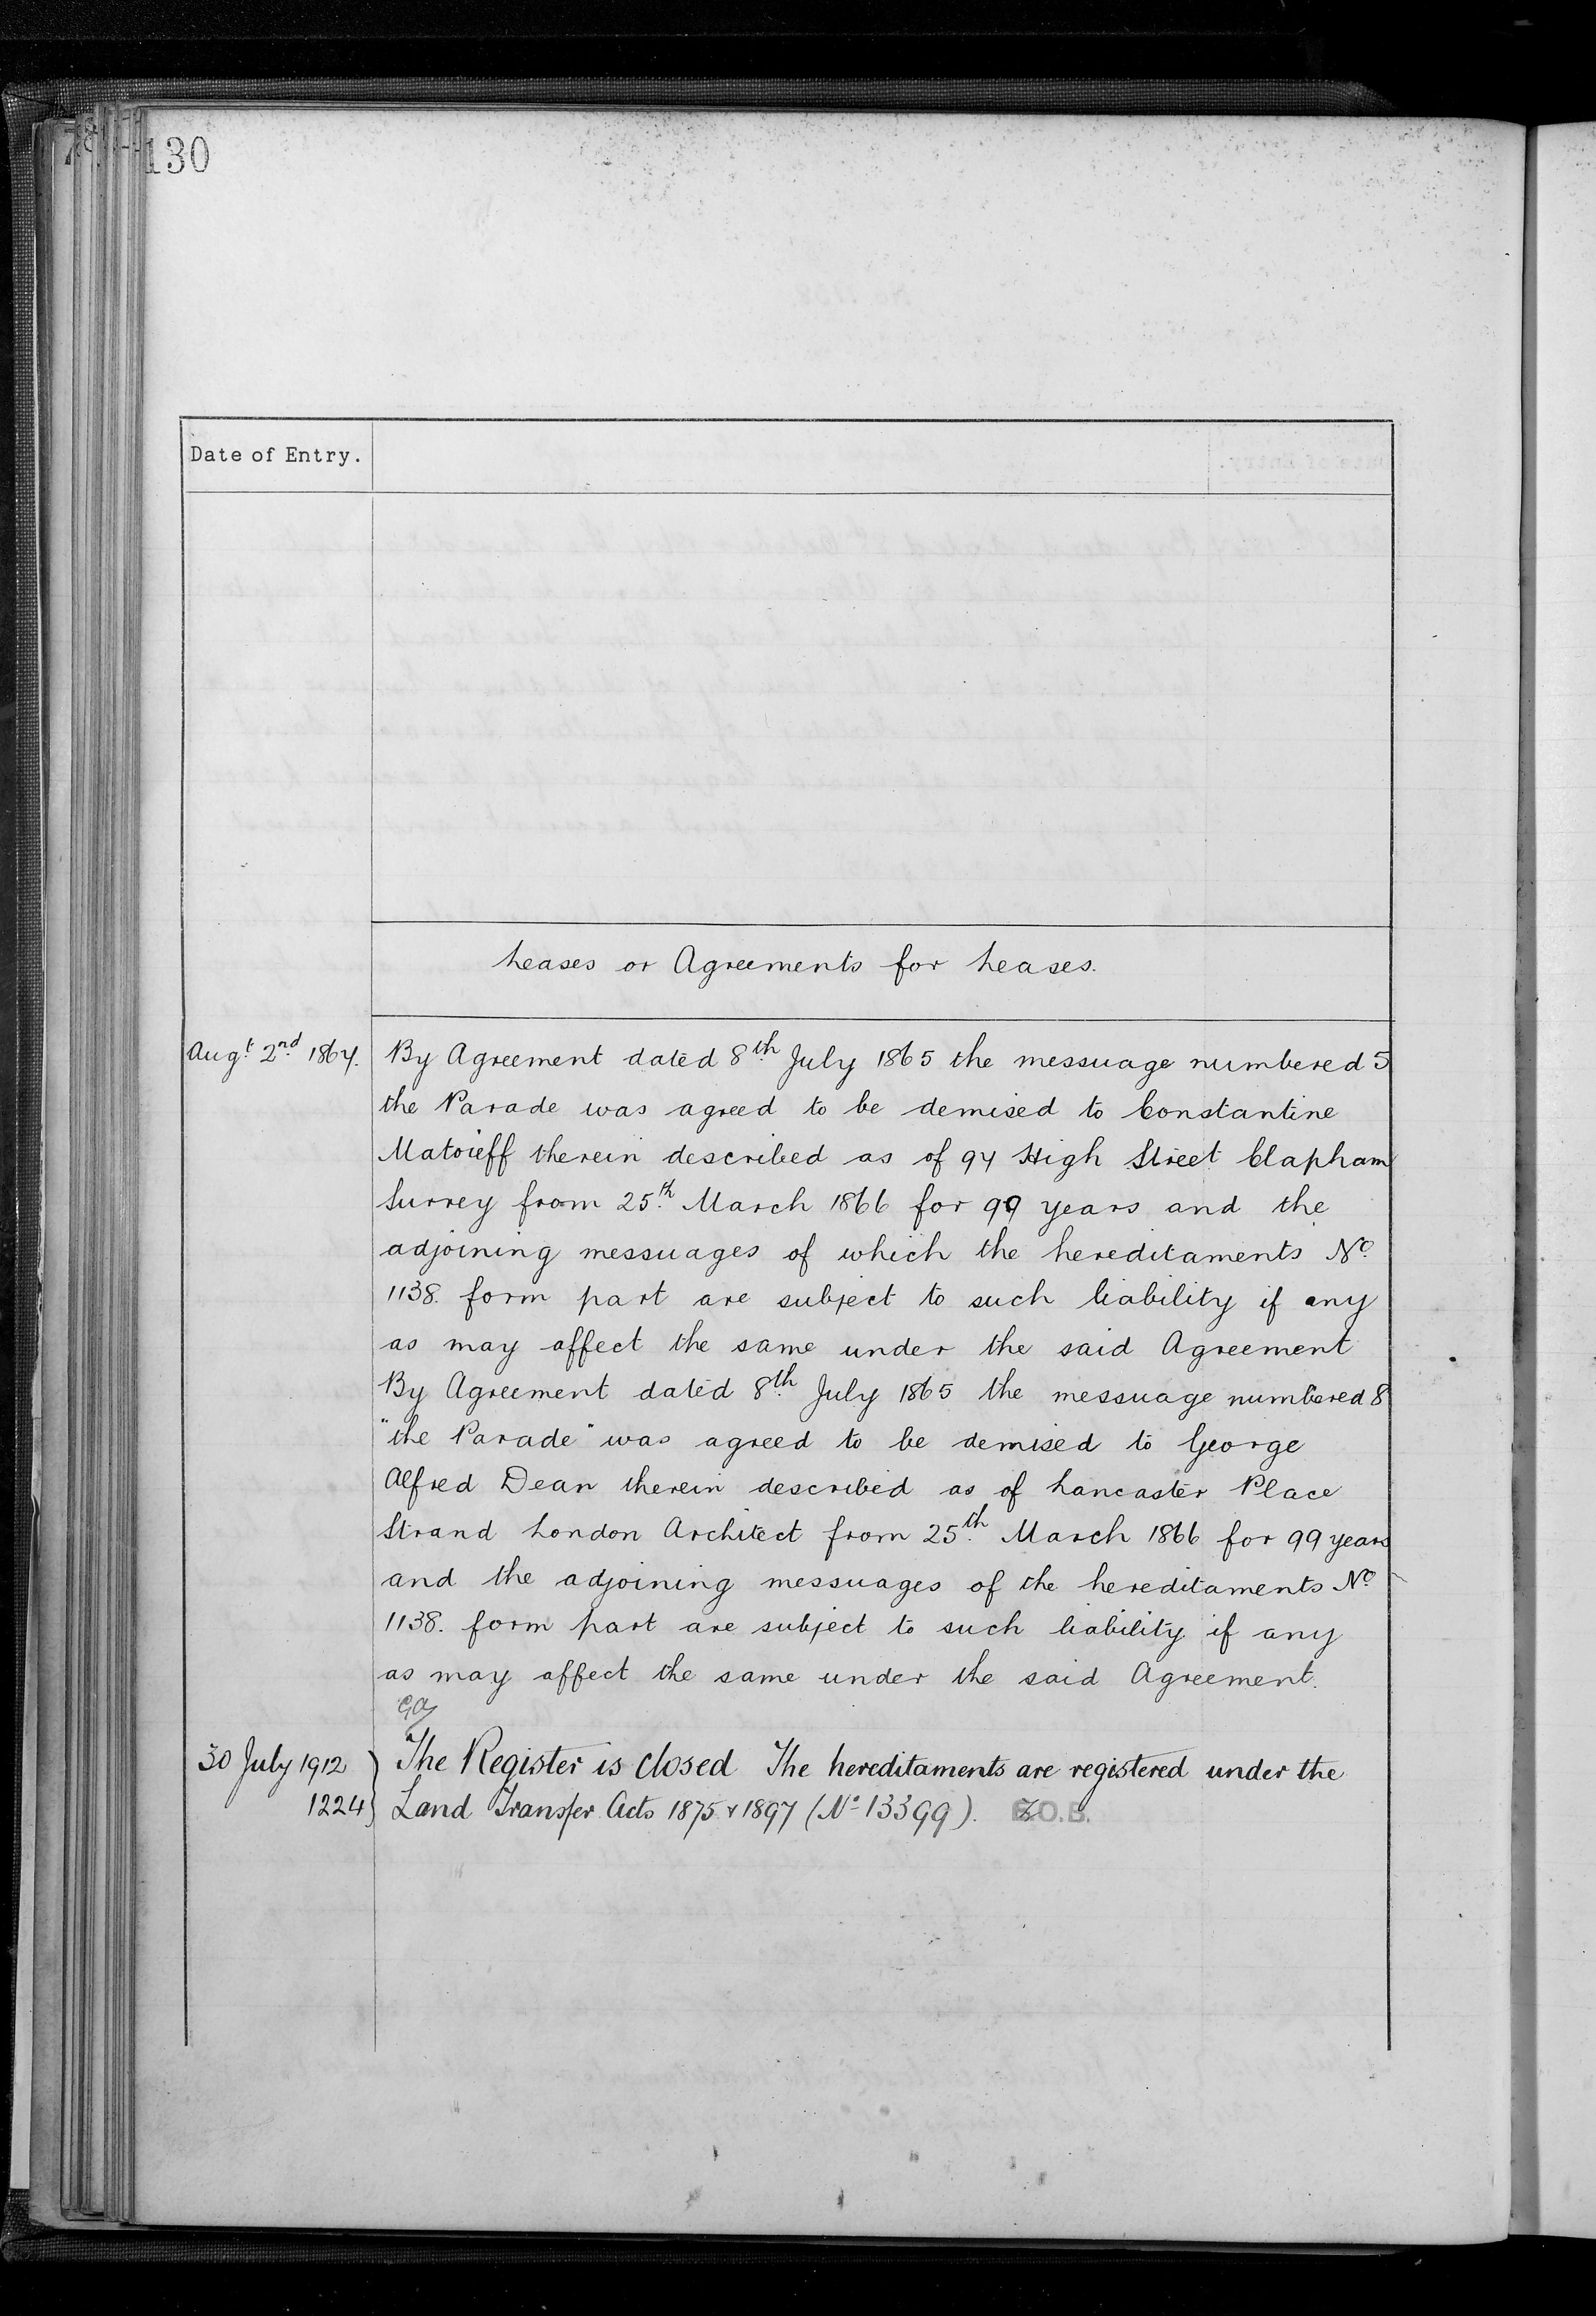 130
Date of Entry.
Leases or Agreements for Leases.
Augt. 2nd. 1867. By Agreement dated 8th July 1865 the messuage numbered 5
the Parade was agreed to be demised to Constantine
Matoieff therein described as of 97 High Street Clapham
Surrey from 25th March 1866 for 99 years and the
adjoining messuages of which the hereditaments No.
1138. form part are subject to such liability if any
as may affect the same under the said Agreement
By Agreement dated 8th July 1865 the messuage numbered 8
"the Parade" was agreed to be demised to George
Alfred Dean therein described as of Lancaster Place
Strand London Architect from 25th March 1866 for 99 years
and the adjoining messuages of the hereditaments No.
1138. form part are subject to such liability if any
as may affect the same under the said Agreement.
30 July 1912 } The Register is closed The hereditaments are registered under the
1224 } Land Transfer Acts 1875 & 1897 (No 13399). O.B.